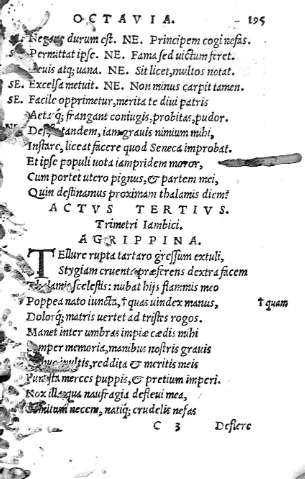 OCTAVIA. 195
SE. Negare durum est. NE. Principem cogi nefas.
SE. Permittat ipse. NE. Fama sed uictum feret.
SE. Leuis atq; uana. NE. Sit licet, multos notat.
SE. Excelsa metuit. NE. Non minus carpit tamen.
SE. Facile opprimetur, merita te diui patris
Aetasq́; frangant coniugis, probitas, pudor.
NE. tandem, iam grauis nimium mihi,
Instare, liceat facere quod Seneca improbat.
Et ipse populi uota iampridem moror,
Cum portet utero pignus, & partem mei,
Quin destinamus proximam thalamis diem?
ACTVS TERTIVS.
Trimetri Iambici.
AGRIPPINA.
TEllure rupta tartaro gressum extuli,
Stygiam cruenta præferens dextra facem
scelestis: nubat hijs flammis meo
Poppea nato iuncta, † quas uindex manus, † quam
Dolorq́; matris uertet ad tristes rogos.
Manet inter umbras impiæ cædis mihi
Semper memoria, manibus nostris grauis
inultis, reddita & meritis meis
Funesta merces puppis, & pretium imperi.
Nox illa qua naufragia defleui mea,
Comitum necem, natiq́; crudelis nefas
C 3 Deflere